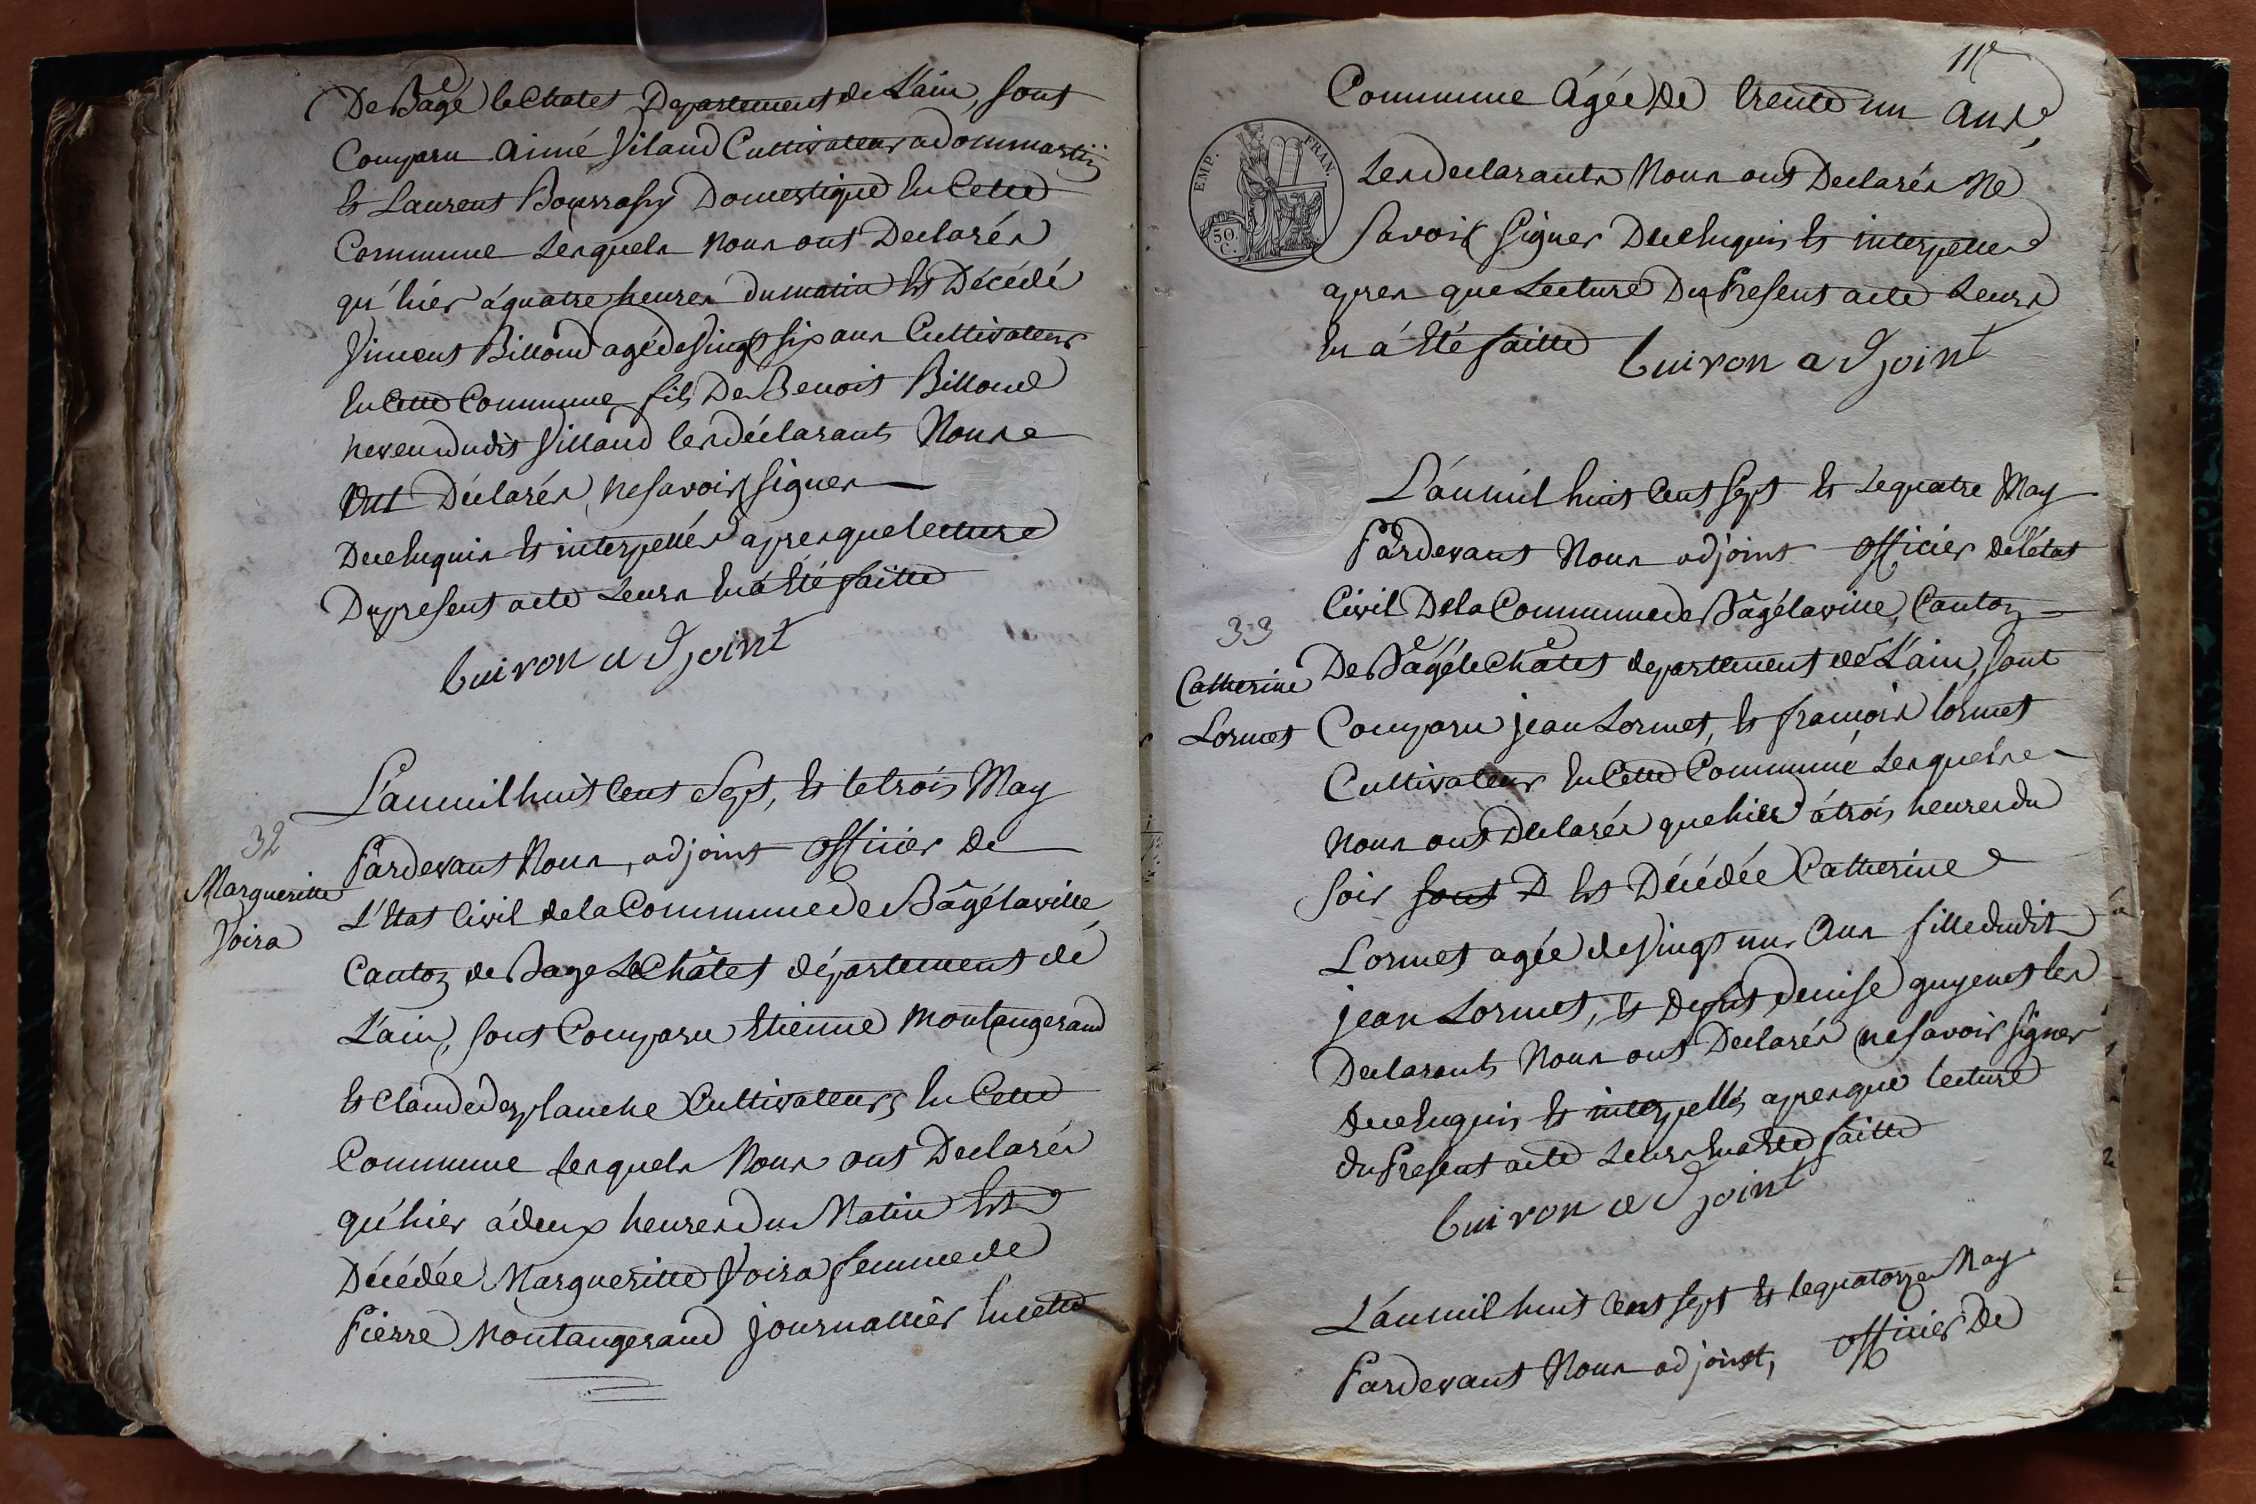 De Bagé le Chatel Departement de L'ain, sont
Comparu aimé Vilaud Cultivateur a dommartin
et Laurent Domestique en Cette
Commune Lesquels nous ont Declarés
qu'hier á quatre heures du matin est Décédé
Vincent Billoud agé de Vingt six ans Cultivateur
en Cette Commune fils De Benoit Billoud
neveu dudit Villaud les déclarants Nous
Ont Déclarés ne savoir signer
De ce Enquis et interpellés apres que lecture
Du present acte Leurs en á Eté faitte
buiron adjoint
L'an mil huit Cent Sept, et le trois May
32
Pardevant Nous, adjoint officier De
Margueritte
Voisa
L'Etat Civil de la Commune de Bâgé la ville
Canton de Bage Le Châtel département dé
L'ain, sont Comparu Etienne montangerand
et Claude desplanche Cultivateurs en Cette
Commune Lesquels Nous ont Declarés
qu'hier á deux heures du Matin Est
Décédée Margueritte Voisa femme de
Pierre Montangerand journallier en cette
Commune Agée De trente un ans
EMP. FRAN.
50 C.
Les declarants Nous ont Declarés Ne
savoir signer De ce Enquis et interpellé
apres que Lecture Du Present acte Leurs
En á Eté faitte buiron adjoint
L'an mil huit Cent Sept et le quatre May
Pardevant Nous adjoint officier de l'état
Civil De la Commune de Bâgé la ville, Canton
33
Catherine
Lornet
De Bâgé le Châtel departement de L'ain, sont
Comparu jean Lornet, et francois lornet
Cultivateur en Cette Commune Lesquels
nous ont Declarés que hier á trois heures du
soir sont D Est Décédée Catherine
Lornet agée de Vingt un Ans fille dudit
jean Lornet, et De fut denise guyenet les
Declarants Nous ont Declarés ne savoir signer
de ce Enquis et interpellés apres que lecture
du Present acte Leurs en a Eté faitte
buiron adjoint
L'an mil huit Cent sept et le quatorze May
Pardevant Nous adjoint, officier De